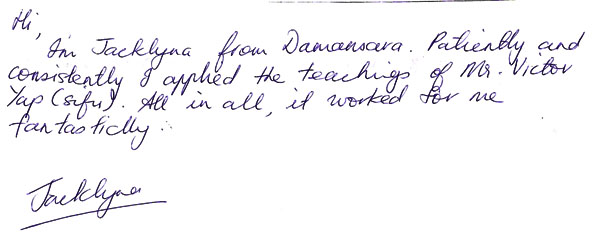 Hi,
I'm Jacklyna from Damansara. Patiently and
consistently I applied the teachings of Mr. Victor
Yap (sifu). All in all, it worked for me
fantasticlly.
Jacklyna